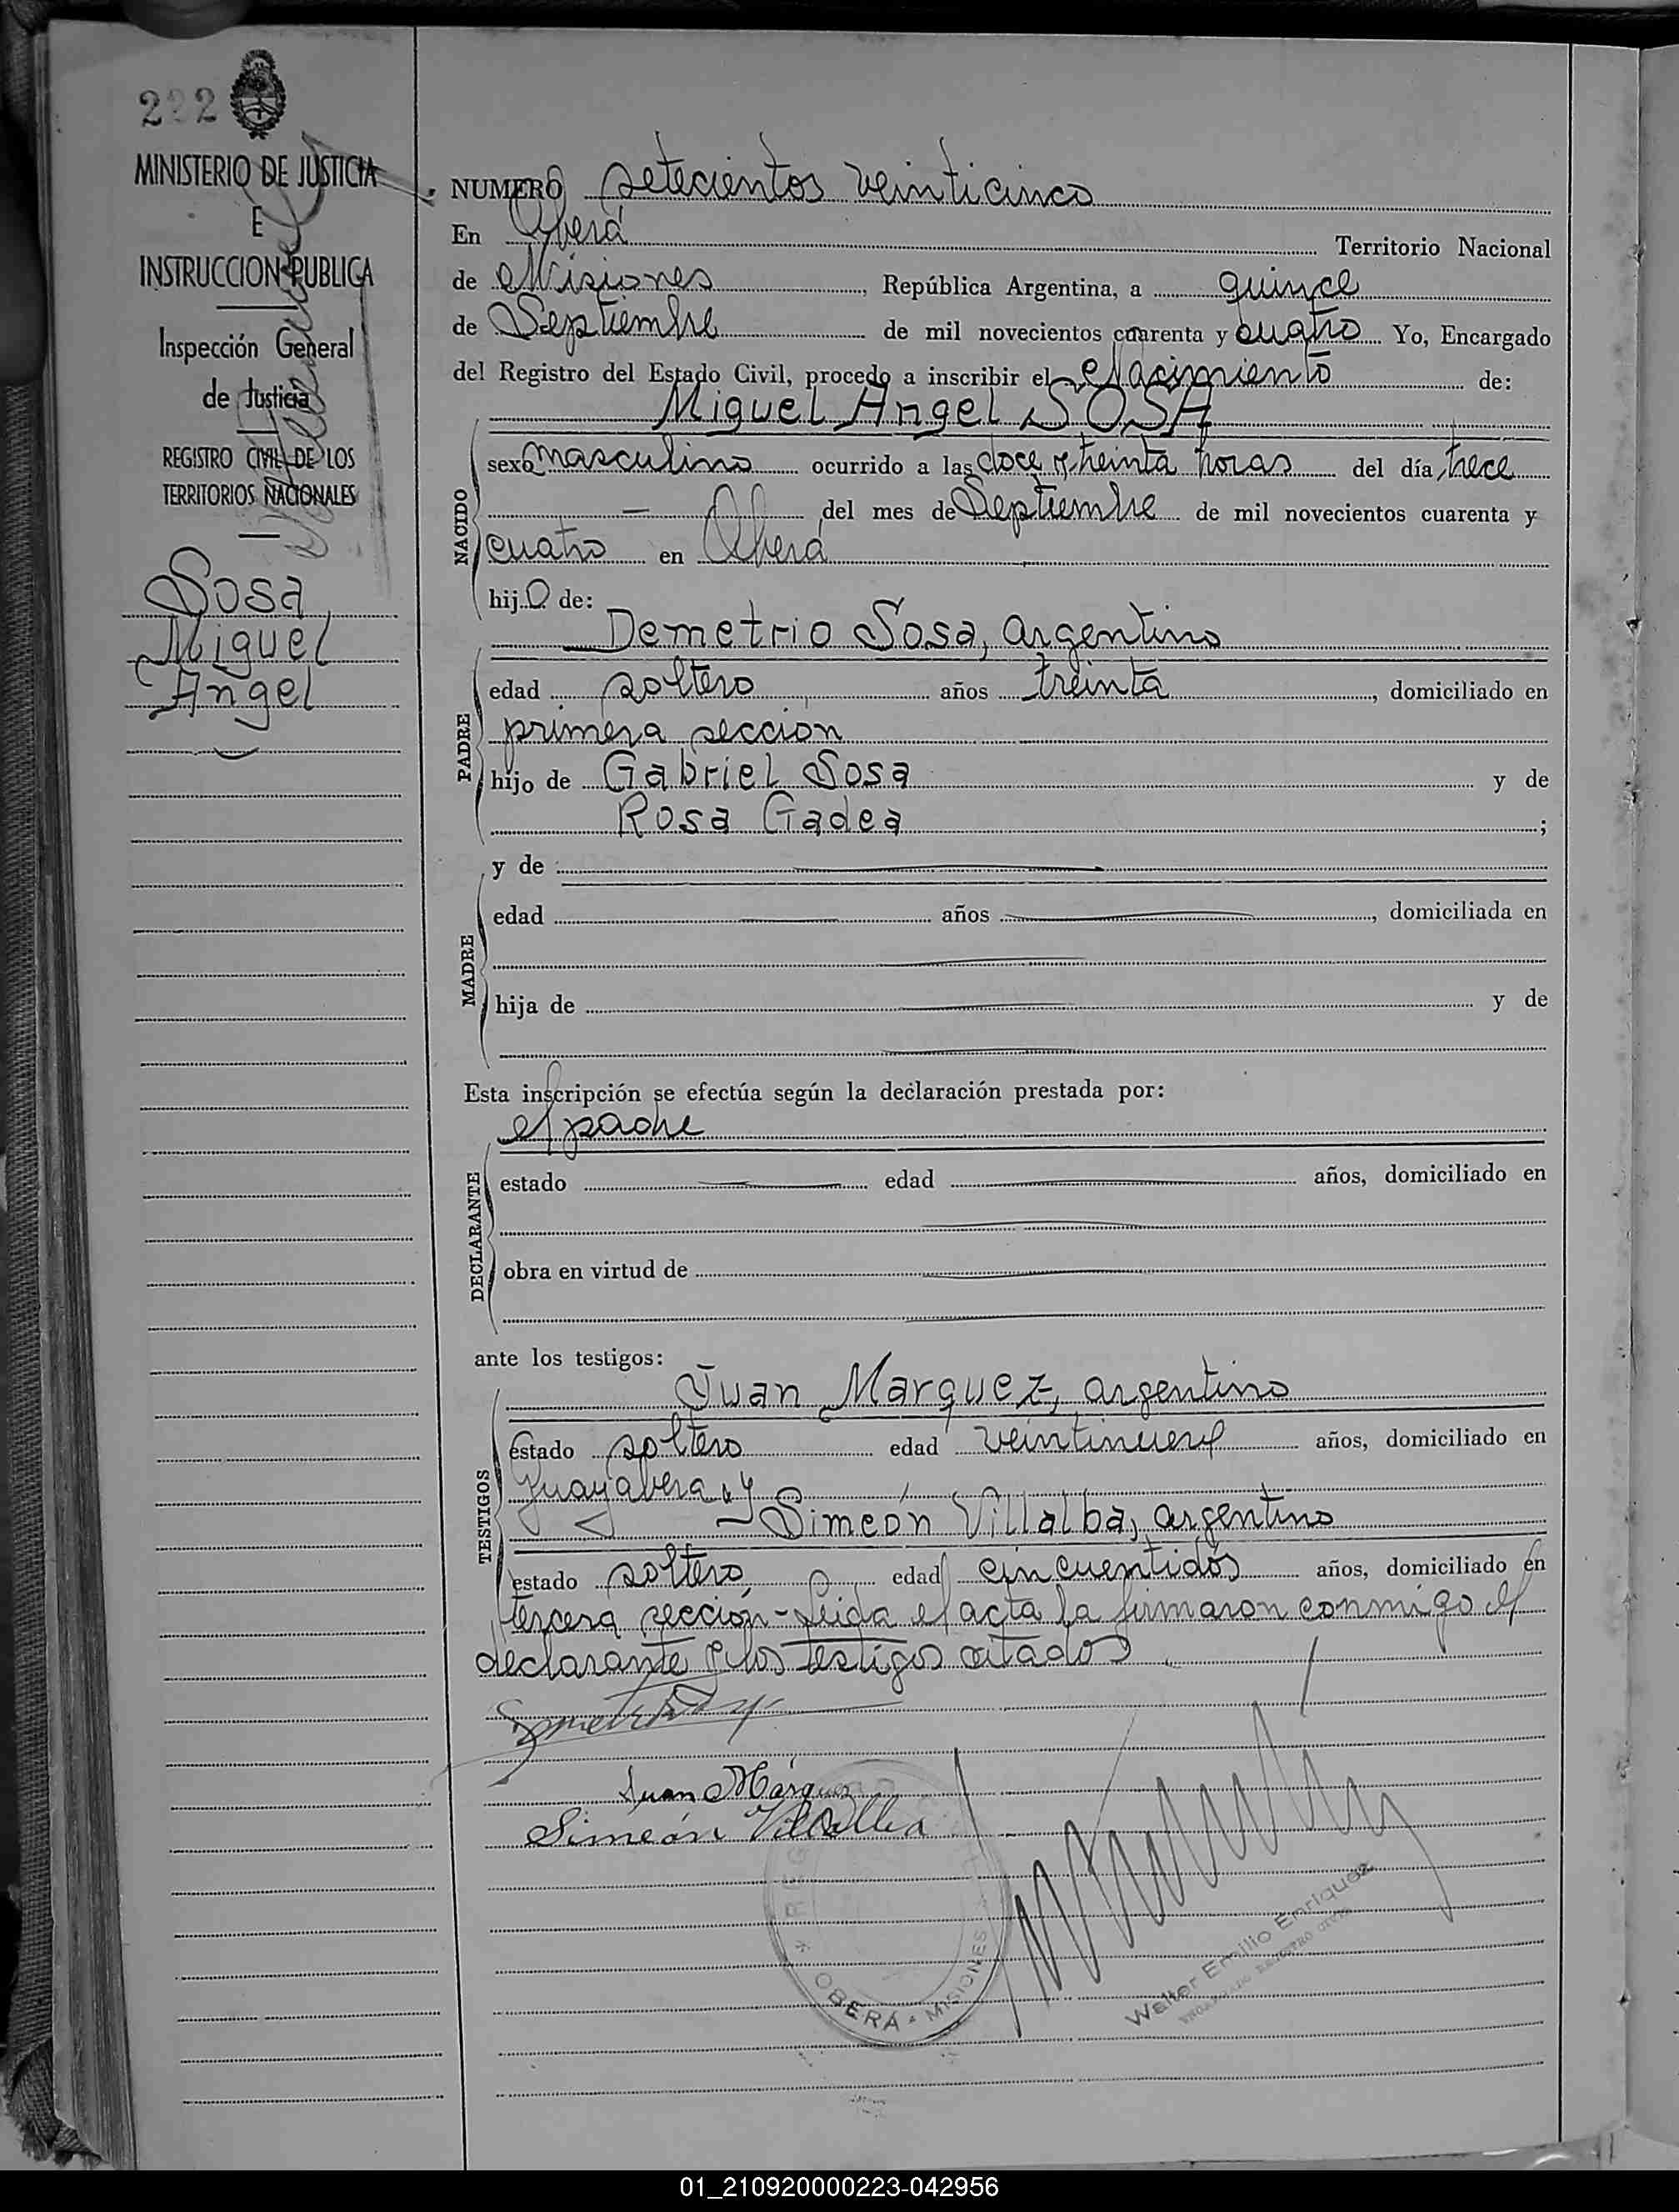 222
MINISTERIO DE JUSTICIA
E
INSTRUCCION PUBLICA
Inspección General
de Justicia
REGISTRO CIVIL DE LOS
TERRITORIOS NACIONALES
Sosa
Miguel
Angel
NUMERO setecientos veinticinco
En Oberá Territorio Nacional
de Misiones, República Argentina, a quince
de Septiembre de mil novecientos cuarenta y cuatro Yo, Encargado
del Registro del Estado Civil, procedo a inscribir el Nacimiento de:
Miguel Angel SOSA
NACIDO
sexo masculino ocurrido a las doce y treinta horas del día trece
— del mes de Septiembre de mil novecientos cuarenta y
cuatro en Oberá
hijo de:
Demetrio Sosa, argentino
PADRE
edad soltero años treinta, domiciliado en
primera sección
hijo de Gabriel Sosa y de
Rosa Gadea ;
MADRE
y de
edad años , domiciliada en
hija de y de
Esta inscripción se efectúa según la declaración prestada por:
el padre
DECLARANTE
estado edad años, domiciliado en
obra en virtud de
ante los testigos:
Juan Marquez, argentino
TESTIGOS
estado soltero edad veintinueve años, domiciliado en
Guayabera y
Simeón Villalba, argentino
estado soltero edad cincuentidós años, domiciliado en
tercera sección - Leida el acta la firmaron conmigo el
declarante y los testigos citados
Juan Márquez
Simeón Villalba
OBERÁ - MISIONES
Walter Emilio Enriquez
ENCARGADO REGISTRO CIVIL
01_210920000223-042956